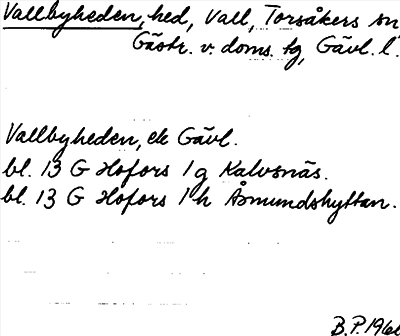 Vallbyheden, hed, Vall, Torsåkers sn
Gästr. v. doms. tg, Gävl. l.
Vallbyheden, ek Gävl.
bl. 13 G Hofors 1 g Kalvsnäs.
bl. 13 G Hofors 1 h Åsmundshyttan.
B.P. 196